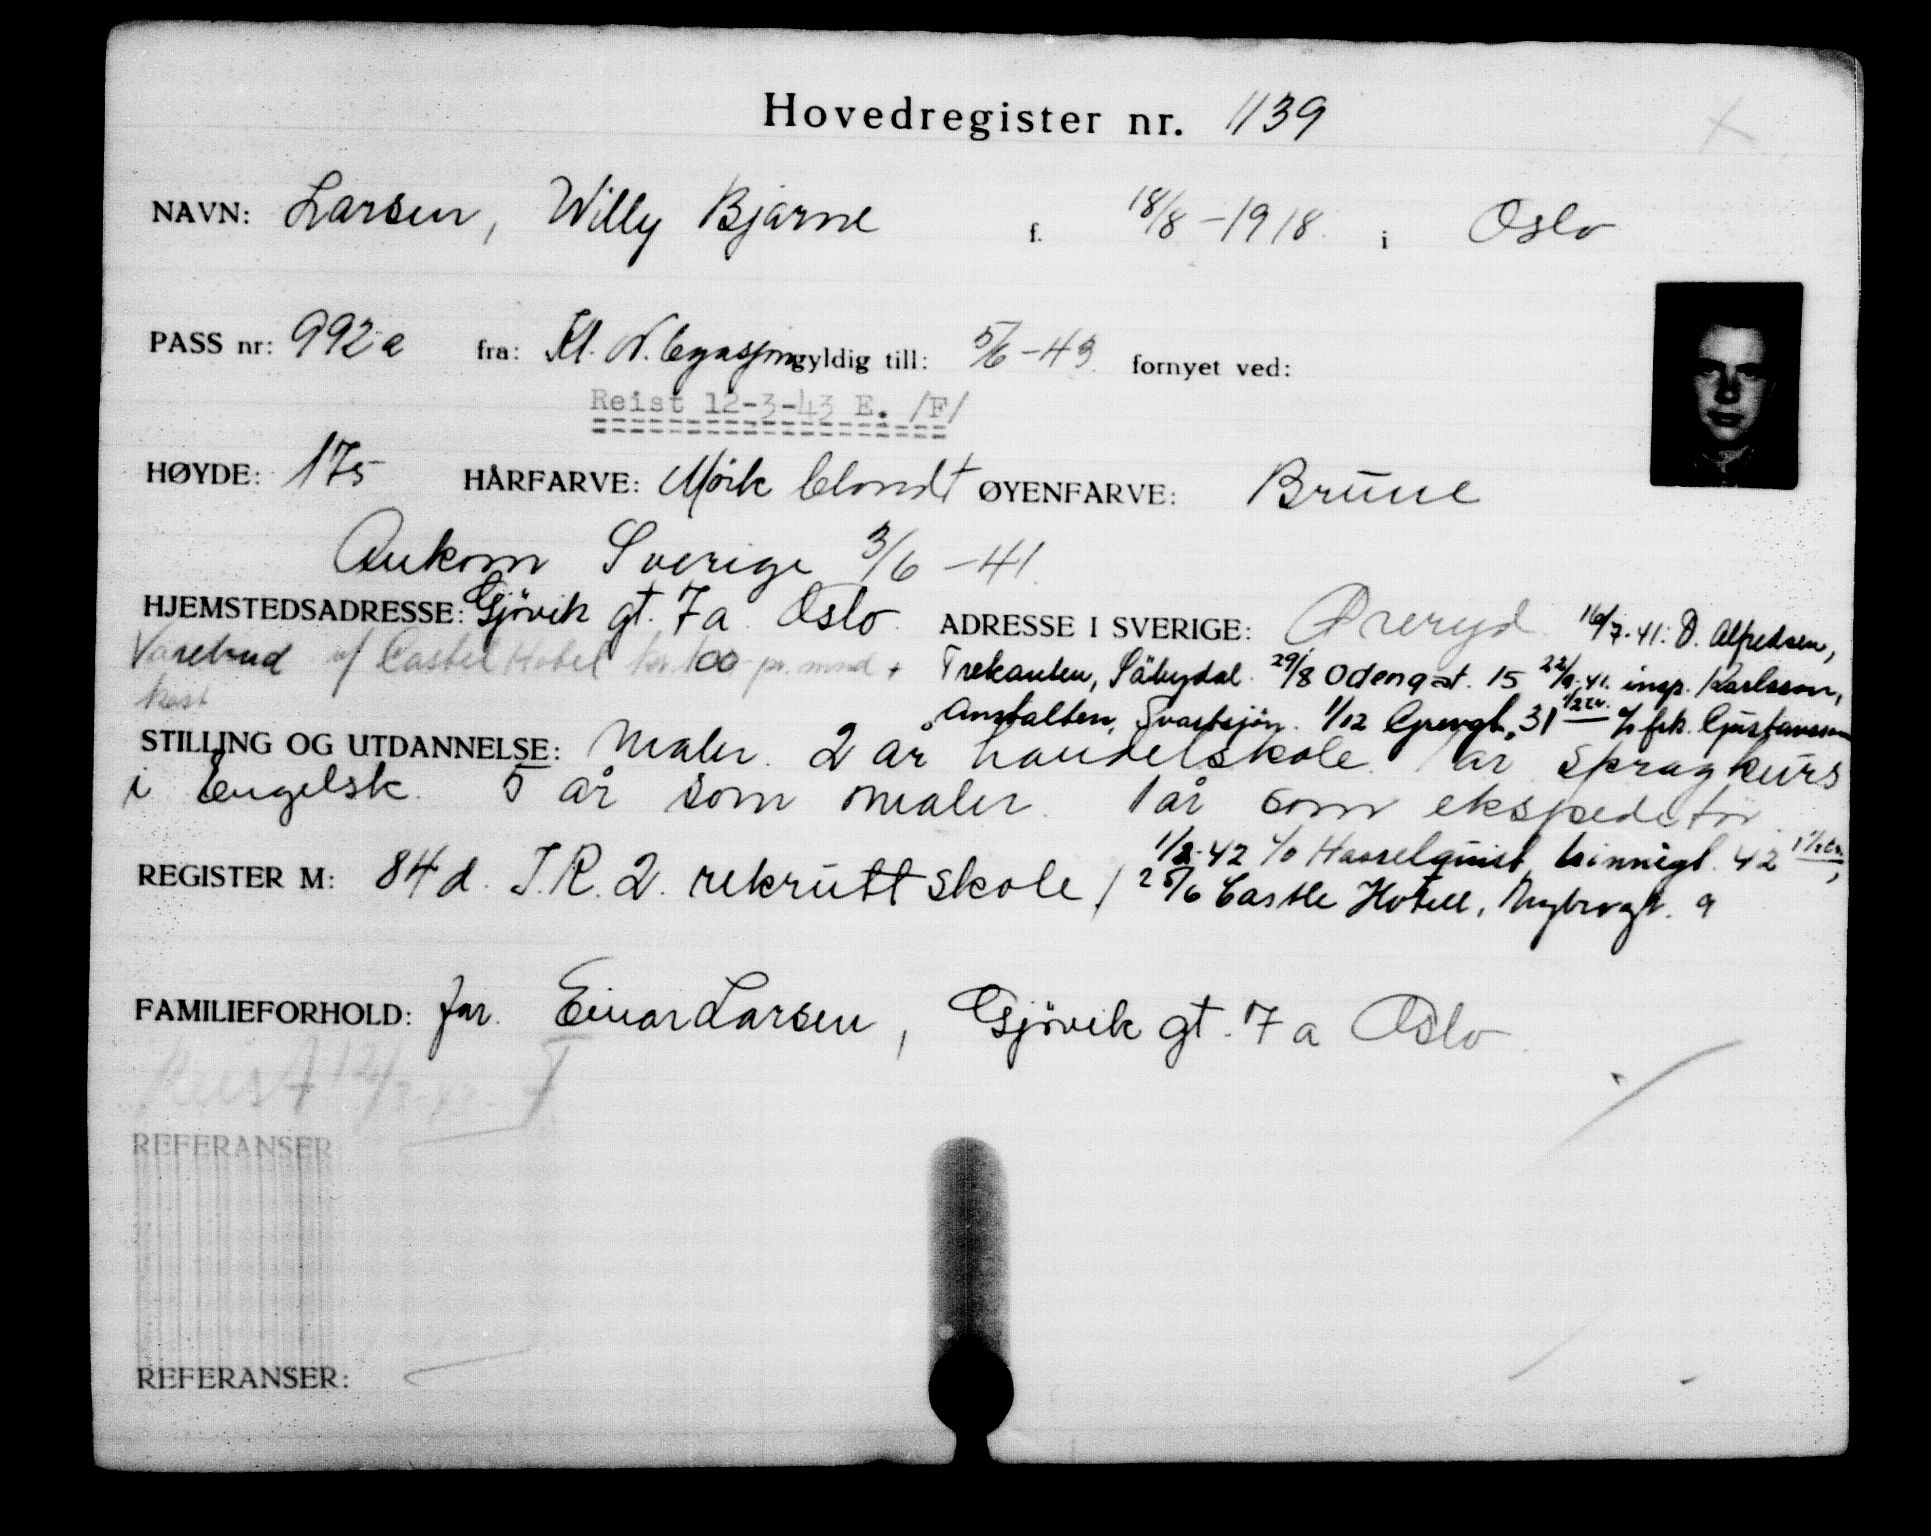 Hovedregister nr. 1139
NAVN: Larsen, Willy Bjarne f. 18/8-1918. i Oslo
PASS nr: 992a fra: Kl. N. legasjon gyldig till: 5/6-43. fornyet ved:
Reist 12-3-43 E. /F/
HØYDE: 175 HÅRFARVE: Mörk blondt ØYENFARVE: Brune
Ankom Sverige 3/6-41.
HJEMSTEDSADRESSE: Gjövik gt. 7a. Oslo. ADRESSE I SVERIGE: Øreryd 16/7-41: O. Alfredsen,
Varebud v/ Castle Hotel kr. 100 pr. mnd + Trekanten, Säbydal. 29/8 Odengat. 15 22/9.41. insp. Karlsson,
kost Anstalten, Svartsjön. 1/12 Grevgt. 31 c/o frk. Gustavsson
STILLING OG UTDANNELSE: Maler. 2 år handelskole. 1 år språgkurs
i Engelsk. 5 år som maler. 1 år som ekspeditör.
1/2-42 c/o Hasselquist, Linnégt. 42
REGISTER M: 84d. I.R.2. rekruttskole / 25/6 Castle Hotell, Nybrogt. 9
FAMILIEFORHOLD: far. Einar Larsen, Gjövik gt. 7a Oslo.
Reist 12/3-43. F
REFERANSER
REFERANSER: